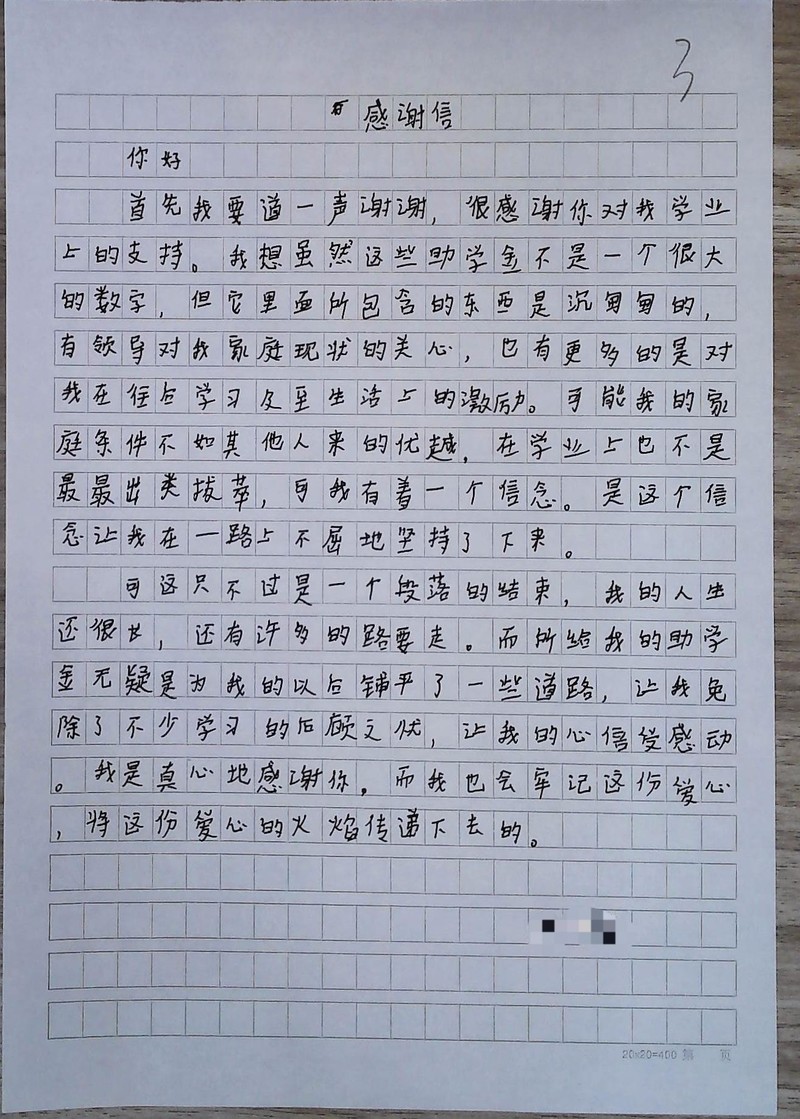 3
感谢信
你好
首先我要道一声谢谢，很感谢你对我学业
上的支持。我想虽然这些助学金不是一个很大
的数字，但它里面所包含的东西是沉甸甸的，
有领导对我家庭现状的关心，也有更多的是对
我在往后学习及至生活上的激励。可能我的家
庭条件不如其他人来的优越，在学业上也不是
最最出类拔萃，可我有着一个信念。是这个信
念让我在一路上不屈地坚持了下来。
可这只不过是一个段落的结束，我的人生
还很长，还有许多的路要走。而所给我的助学
金无疑是为我的以后铺平了一些道路，让我免
除了不少学习的后顾之忧，让我的心倍受感动
。我是真心地感谢你，而我也会牢记这份爱心
，将这份爱心的火焰传递下去的。
20×20=400 第 页